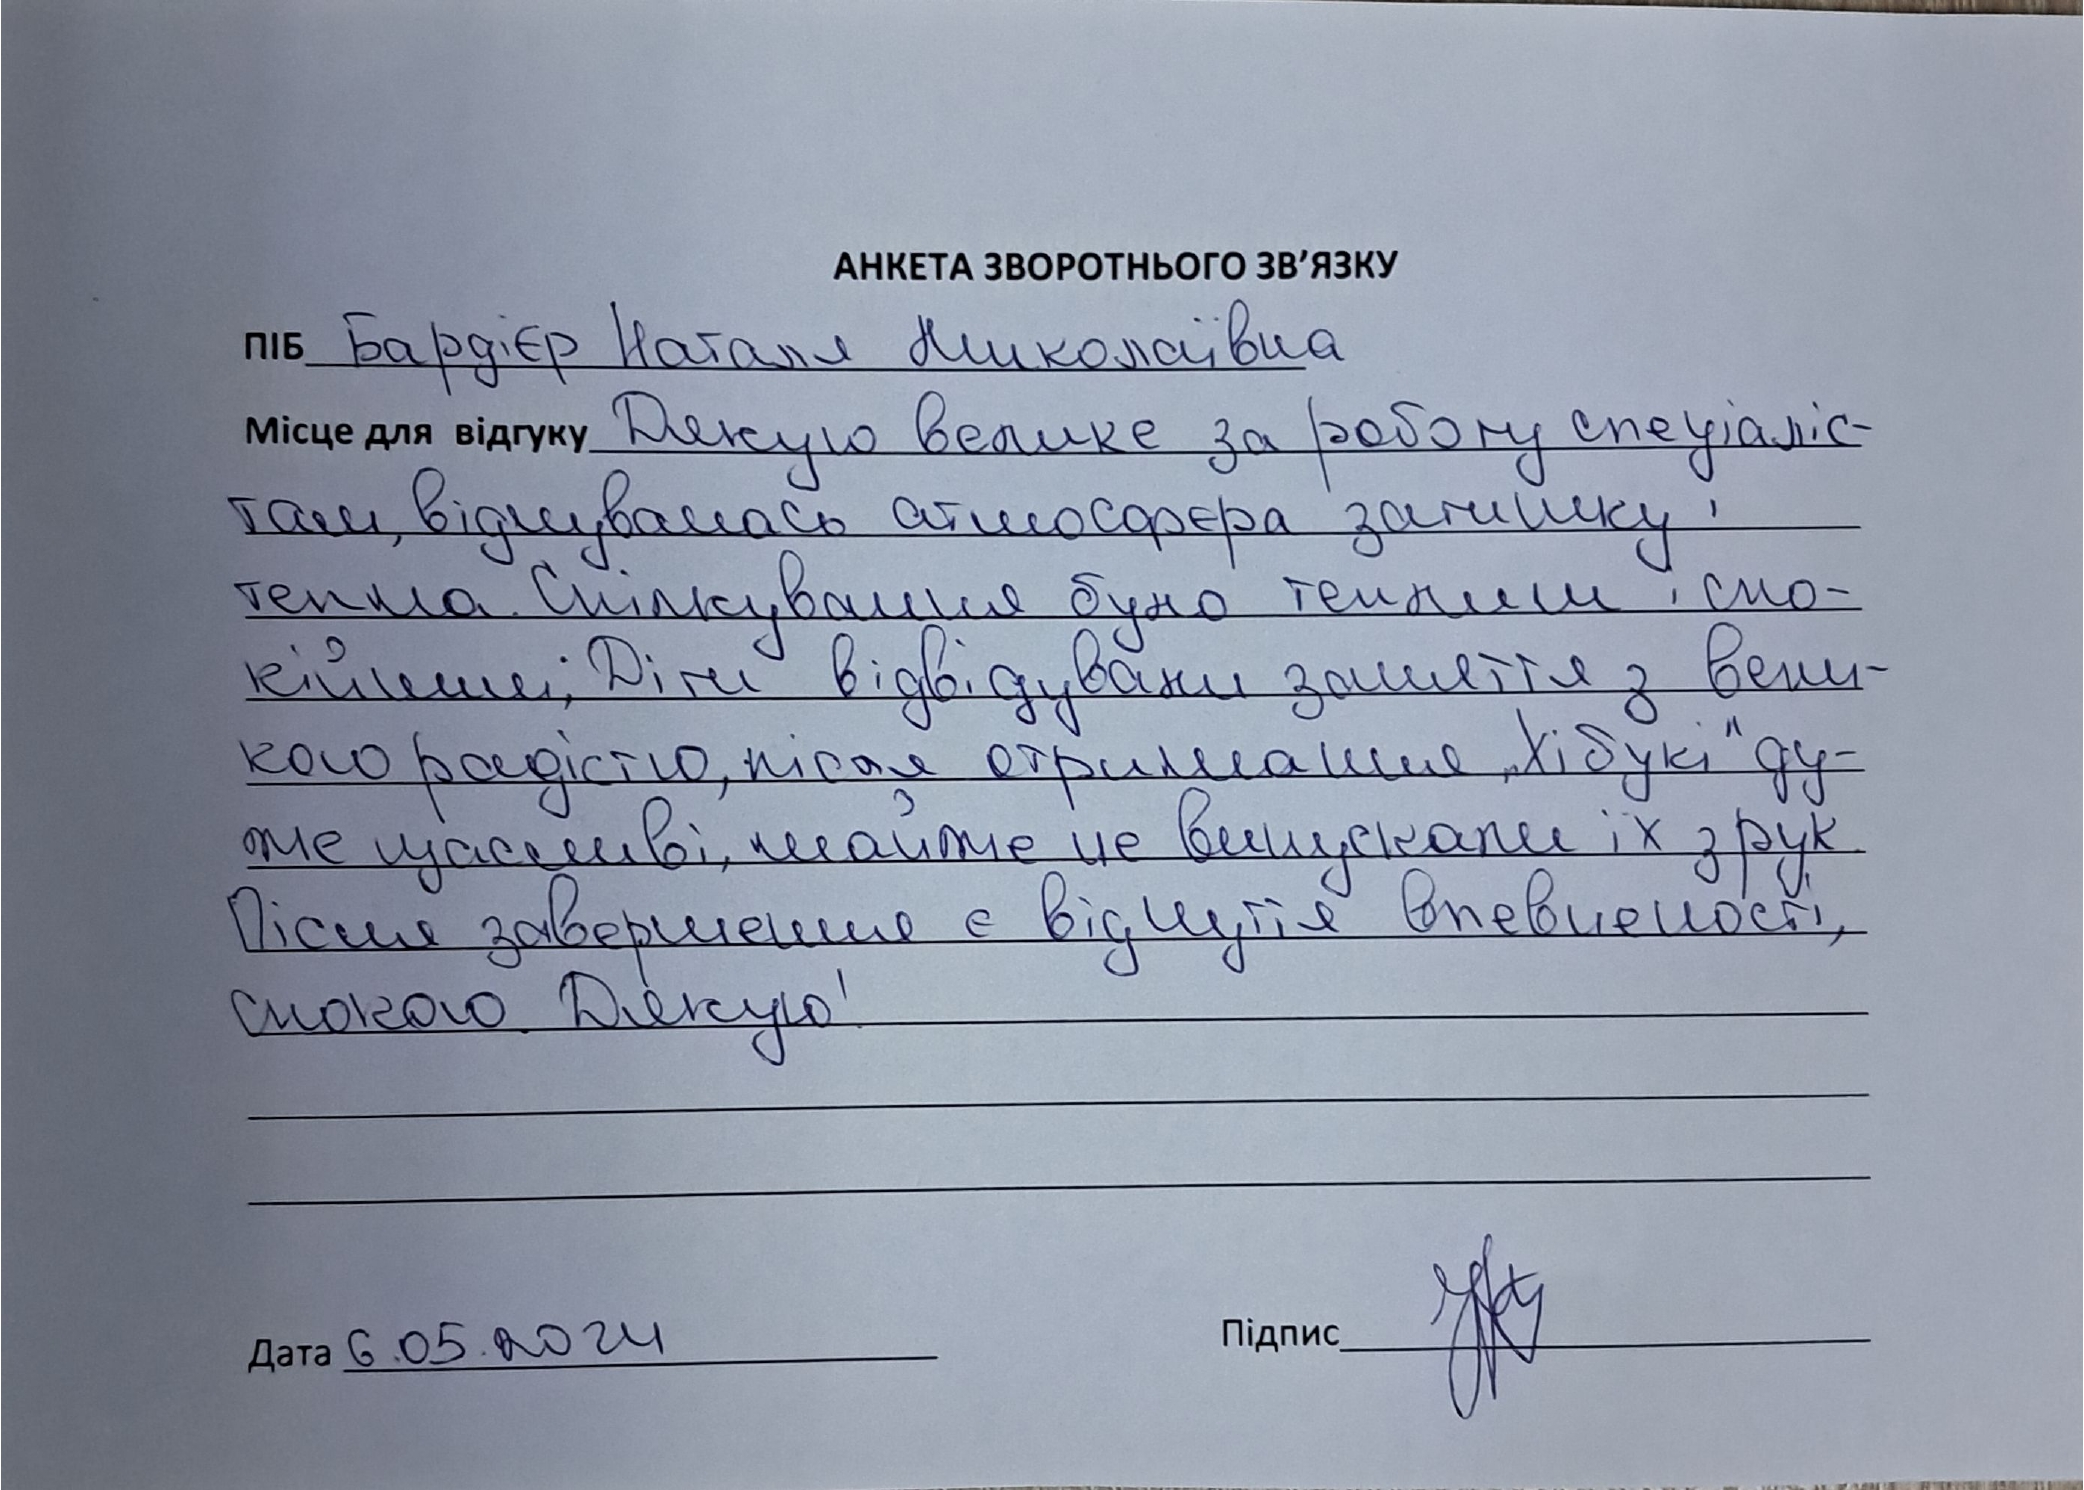 АНКЕТА ЗВОРОТНЬОГО ЗВ'ЯЗКУ
ПІБ Бардієр Наталя Миколаївна
Місце для відгуку Дякую велике за роботу спеціаліс-
там, відчувалась атмосфера затишку і
тепла. Спілкування було теплим і спо-
кійним; Діти відвідували заняття з вели-
кою радістю, після отримання „Хібукі" ду-
же щасливі, майже не випускали їх з рук.
Після завершення є відчуття впевненості,
спокою. Дякую!
Дата 6.05.2024
Підпис